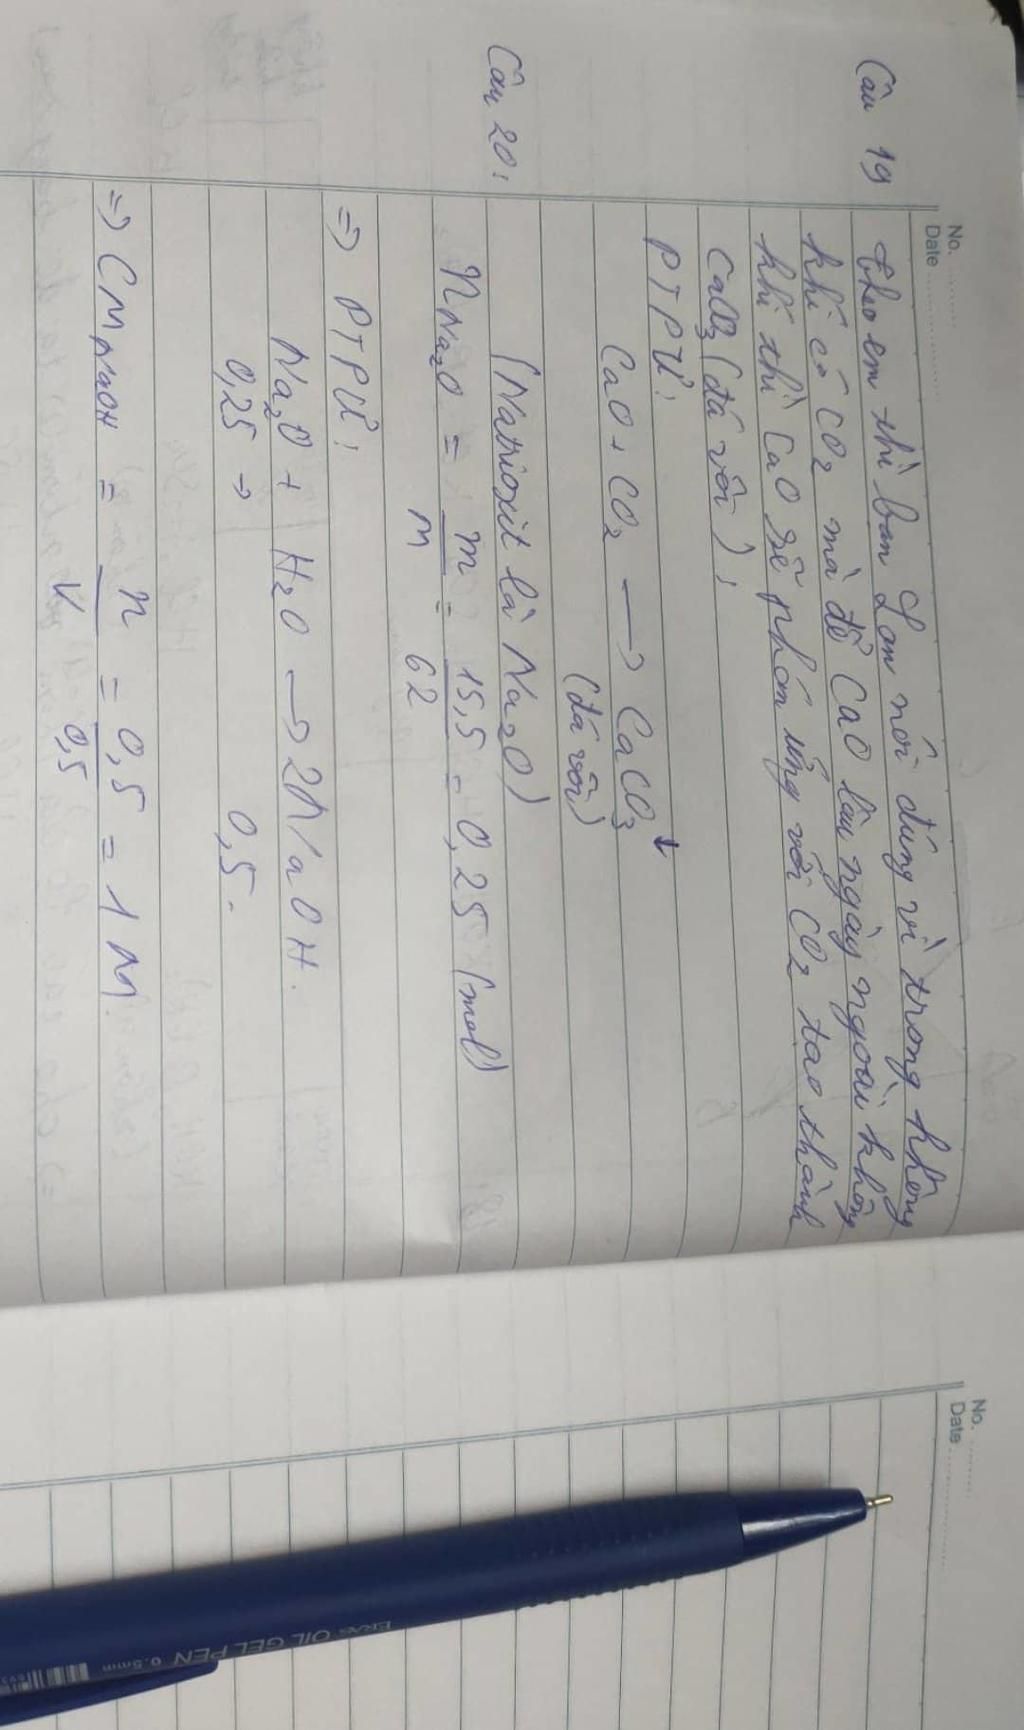 No.
Date
Câu 19 theo em thì bạn Lan nói đúng vì trong không
khí có CO2 mà để CaO lâu ngày ngoài không
khí thì CaO sẽ phản ứng với CO2 tạo thành
CaCO3 (đá vôi);
PTPU:
CaO + CO2 → CaCO3 ↓
(đá vôi)
Câu 20: (Natrioxit là Na2O)
nNa2O = m/M = 15,5/62 = 0,25 (mol)
=> PTPU:
Na2O + H2O → 2NaOH.
0,25 → 0,5.
=> CMNaOH = n/V = 0,5/0,5 = 1M.
No.
Date
ERAS OIL GEL PEN 0.5mm